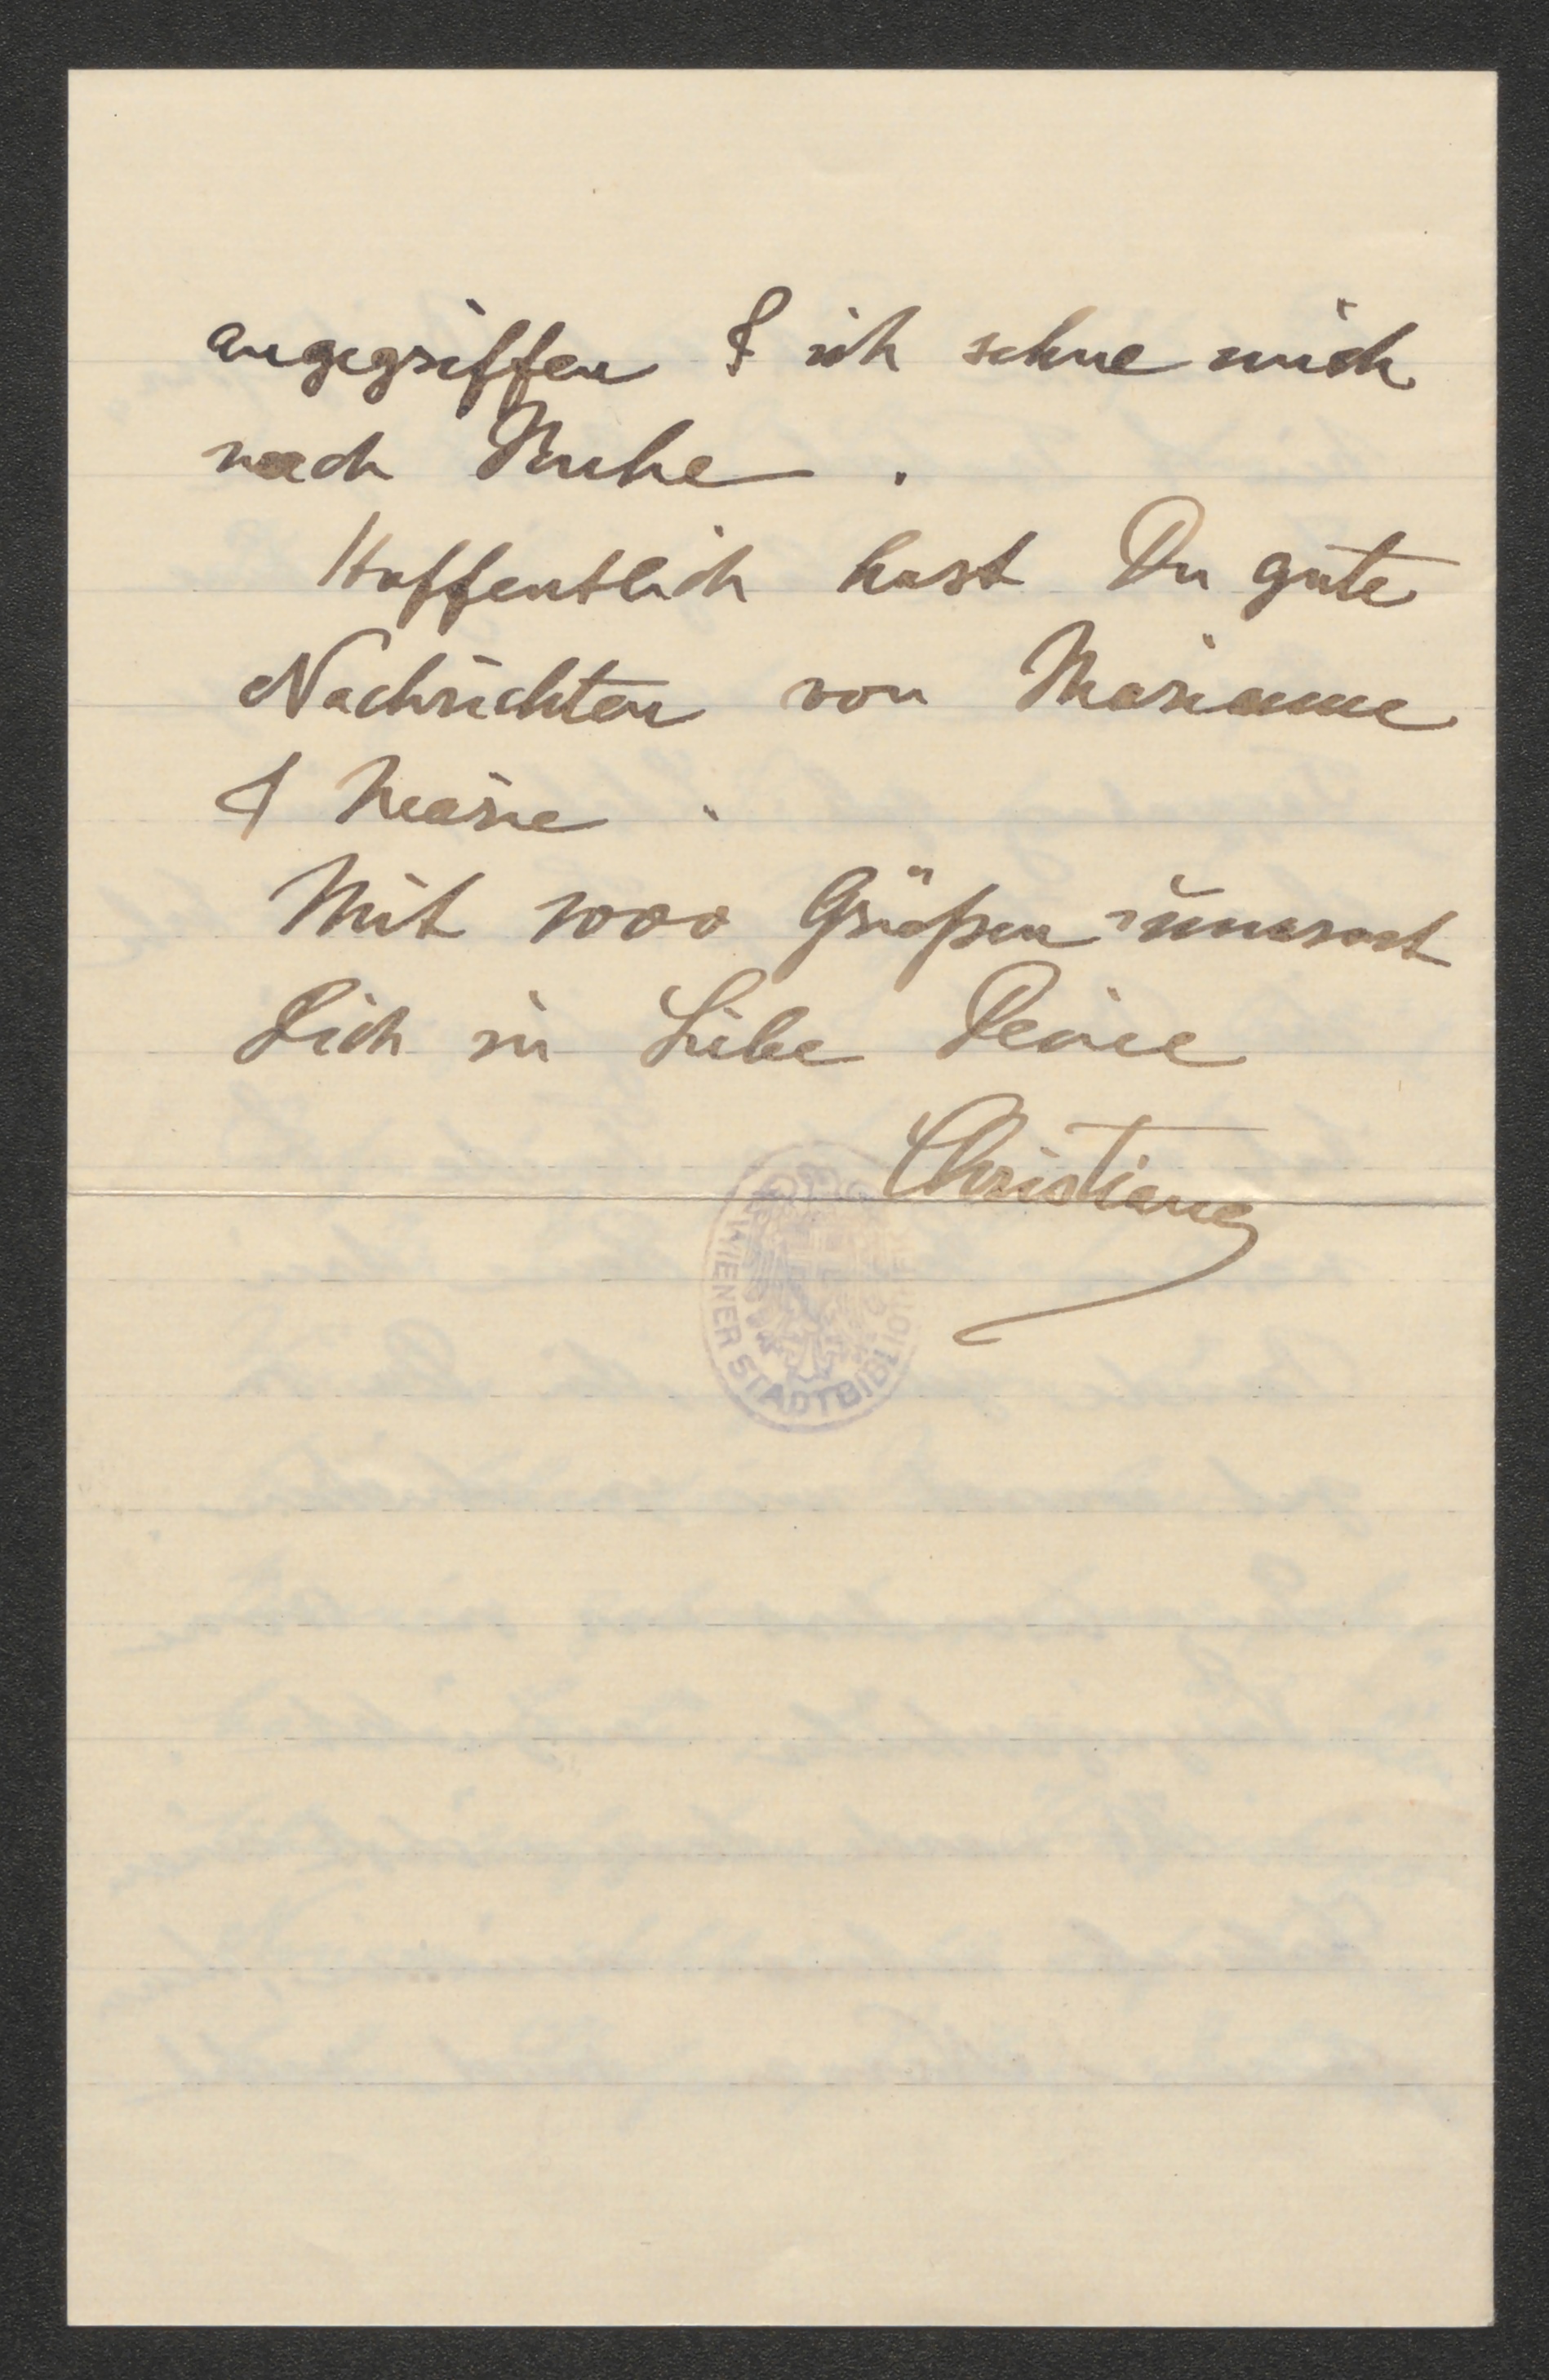 angegriffen & ich sehne mich
nach Ruhe.
Hoffentlich hast Du gute
Nachrichten von Marianne
& Marie.
Mit 1000 Grüßen umarmt
Dich in Liebe Deine
Christiane
WIENER STADTBIBLIOTHEK